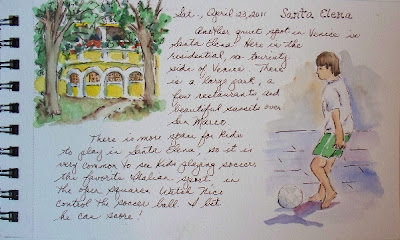 Sat., April 23, 2011 Santa Elena
Another quiet spot in Venice is
Santa Elena. Here in the
residential, no touristy
side of Venice. There
is a large park, a
few restaurants and
beautiful sunsets over
San Marco.
There is more space for kids
to play in Santa Elena, so it is
very common to see kids playing soccer,
the favorite Italian sport, in
the open squares. Watch Nico
control the soccer ball. I bet
he can score!